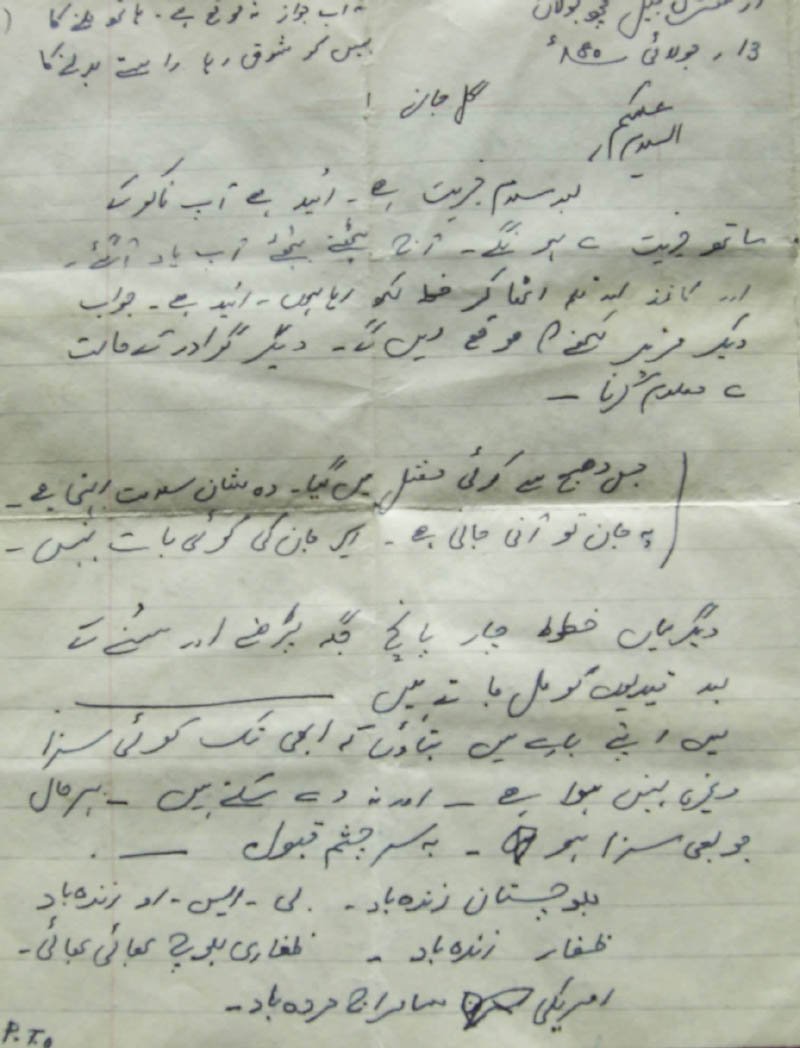 از سنٹرل جیل مچھ بولان
13، جولائی ۱۹۸۰ء
نہ اب جواز نہ موقع ہے، ہاتھ ملنے کا
ہمیں کو شوق رہا راستے بدلنے کا
گل جان!
السلام علیکم
بعد سلام خیریت ہے۔ امید ہے آپ
خیریت سے ہونگے۔ آج بیٹھے بیٹھے آپ یاد آگئے۔
اور کاغذ اور قلم اٹھا کر خط لکھ رہا ہوں۔ امید ہے۔ جواب
دیکر مزید لکھنے کا موقع دیں گے۔ دیگر
جس دھج سے کوئی مقتل میں گیا۔ وہ شان سلامت رہتی ہے۔
یہ جان تو آنی جانی ہے۔ اس جان کی کوئی بات نہیں۔
دیگر یہاں خطوط چار پانچ جگہ پڑھنے اور سننے کے
بعد قیدیوں کو مل جاتے ہیں
میں اپنے بارے میں بتاؤں کہ ابھی تک کوئی سزا
وغیرہ نہیں ہوا ہے۔ اور نہ دے سکتے ہیں۔ بہرحال
جو بھی سزا ہو۔ بہ سر چشم قبول
بلوچستان زندہ باد۔ بی۔ ایس۔ او زندہ باد
ظفار زندہ باد۔ ظفاری بلوچ بھائی بھائی۔
امریکی سامراج مردہ باد۔
P.T.O